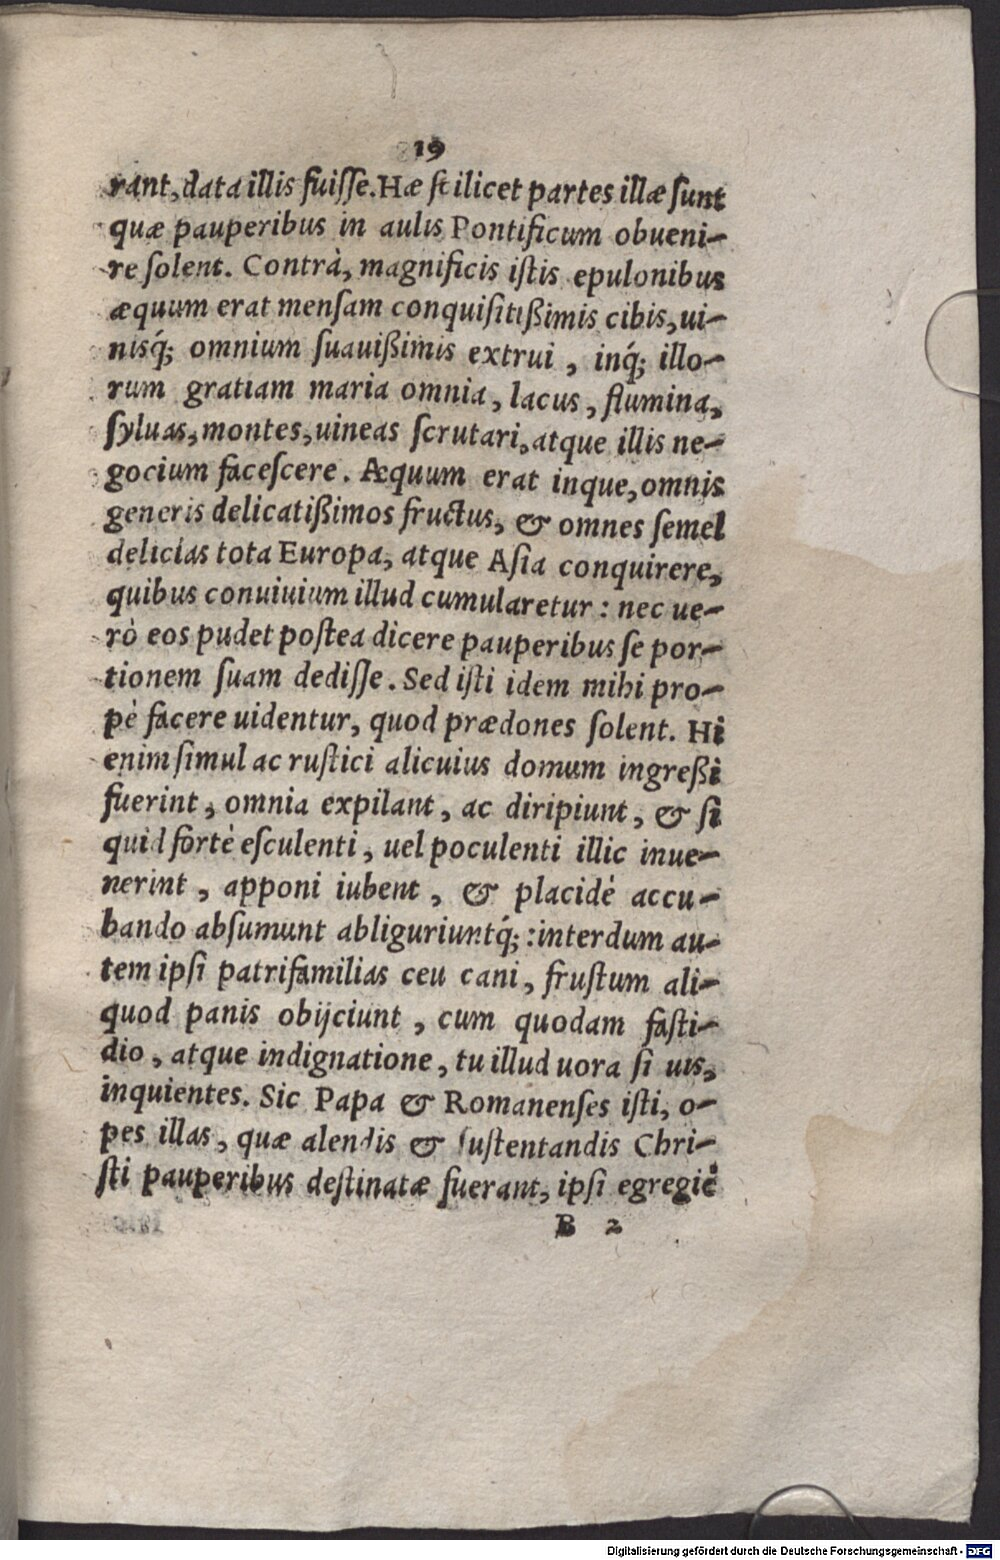 19
rant, data illis fuiſſe. Hæ ſcilicet partes illæ ſunt
quæ pauperibus in aulis Pontificum obueni-
re ſolent. Contrà, magnificis iſtis epulonibus
æquum erat menſam conquiſitißimis cibis, ui-
nisq́; omnium ſuauißimis extrui, inq́; illo-
rum gratiam maria omnia, lacus, flumina,
ſyluas, montes, uineas ſcrutari, atque illis ne-
gocium faceſcere. Æquum erat inque, omnis
generis delicatißimos fructus, & omnes ſemel
delicias tota Europa, atque Aſia conquirere,
quibus conuiuium illud cumularetur: nec ue-
rò eos pudet poſtea dicere pauperibus ſe por-
tionem ſuam dediſſe. Sed iſti idem mihi pro-
pè facere uidentur, quod prædones ſolent. Hi
enim ſimul ac ruſtici alicuius domum ingreßi
fuerint, omnia expilant, ac diripiunt, & ſi
quid fortè eſculenti, uel poculenti illic inue-
nerint, apponi iubent, & placidè accu-
bando abſumunt abliguriuntq́;: interdum au-
tem ipſi patrifamilias ceu cani, fruſtum ali-
quod panis obijciunt, cum quodam faſti-
dio, atque indignatione, tu illud uora ſi uis,
inquientes. Sic Papa & Romanenſes iſti, o-
pes illas, quæ alendis & ſuſtentandis Chri-
ſti pauperibus deſtinatæ fuerant, ipſi egregiè
B 2
Digitalisierung gefördert durch die Deutsche Forschungsgemeinschaft - DFG